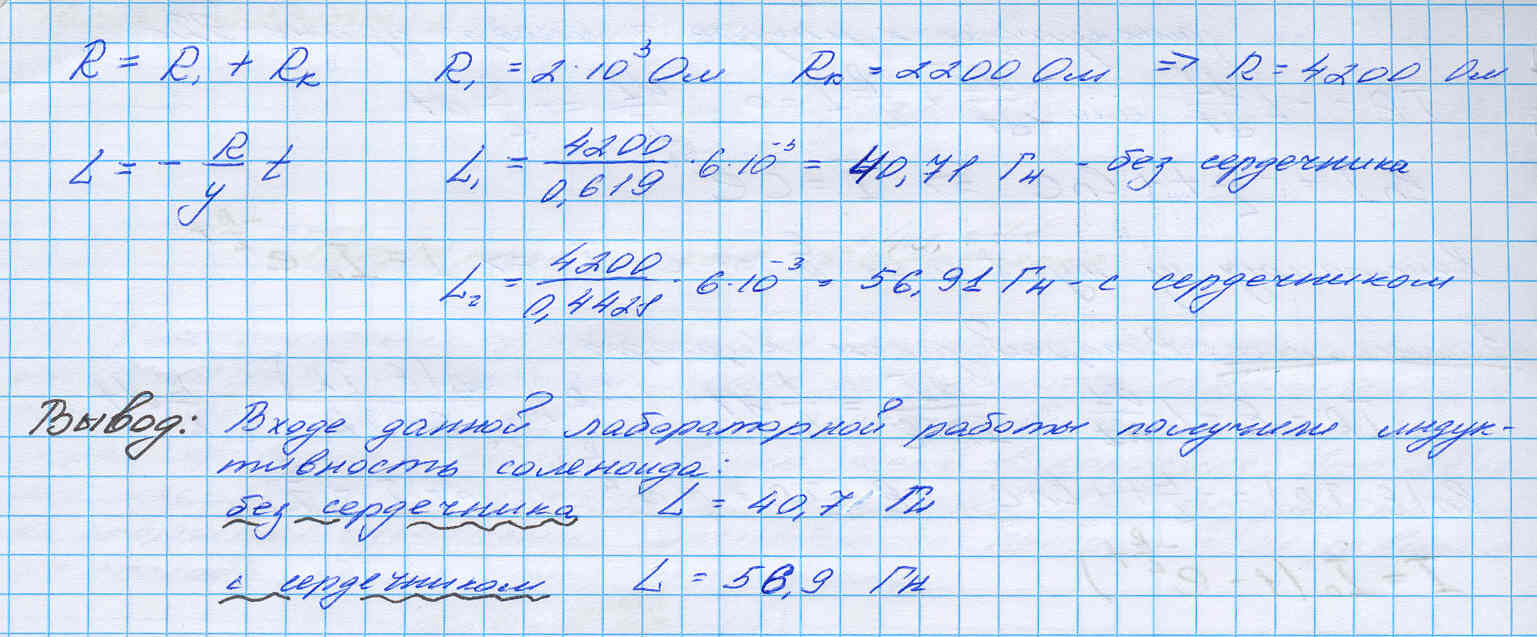 R = R₁ + Rₖ R₁ = 2·10³ Ом Rₖ = 2200 Ом => R = 4200 Ом
L = - R/y t L₁ = 4200/0,619 · 6·10⁻³ = 40,71 Гн - без сердечника
L₂ = 4200/0,4429 · 6·10⁻³ = 56,91 Гн - с сердечником
Вывод: Входе данной лабораторной работы получили индук-
тивность соленоида:
без сердечника L = 40,7 Гн
с сердечником L = 56,9 Гн